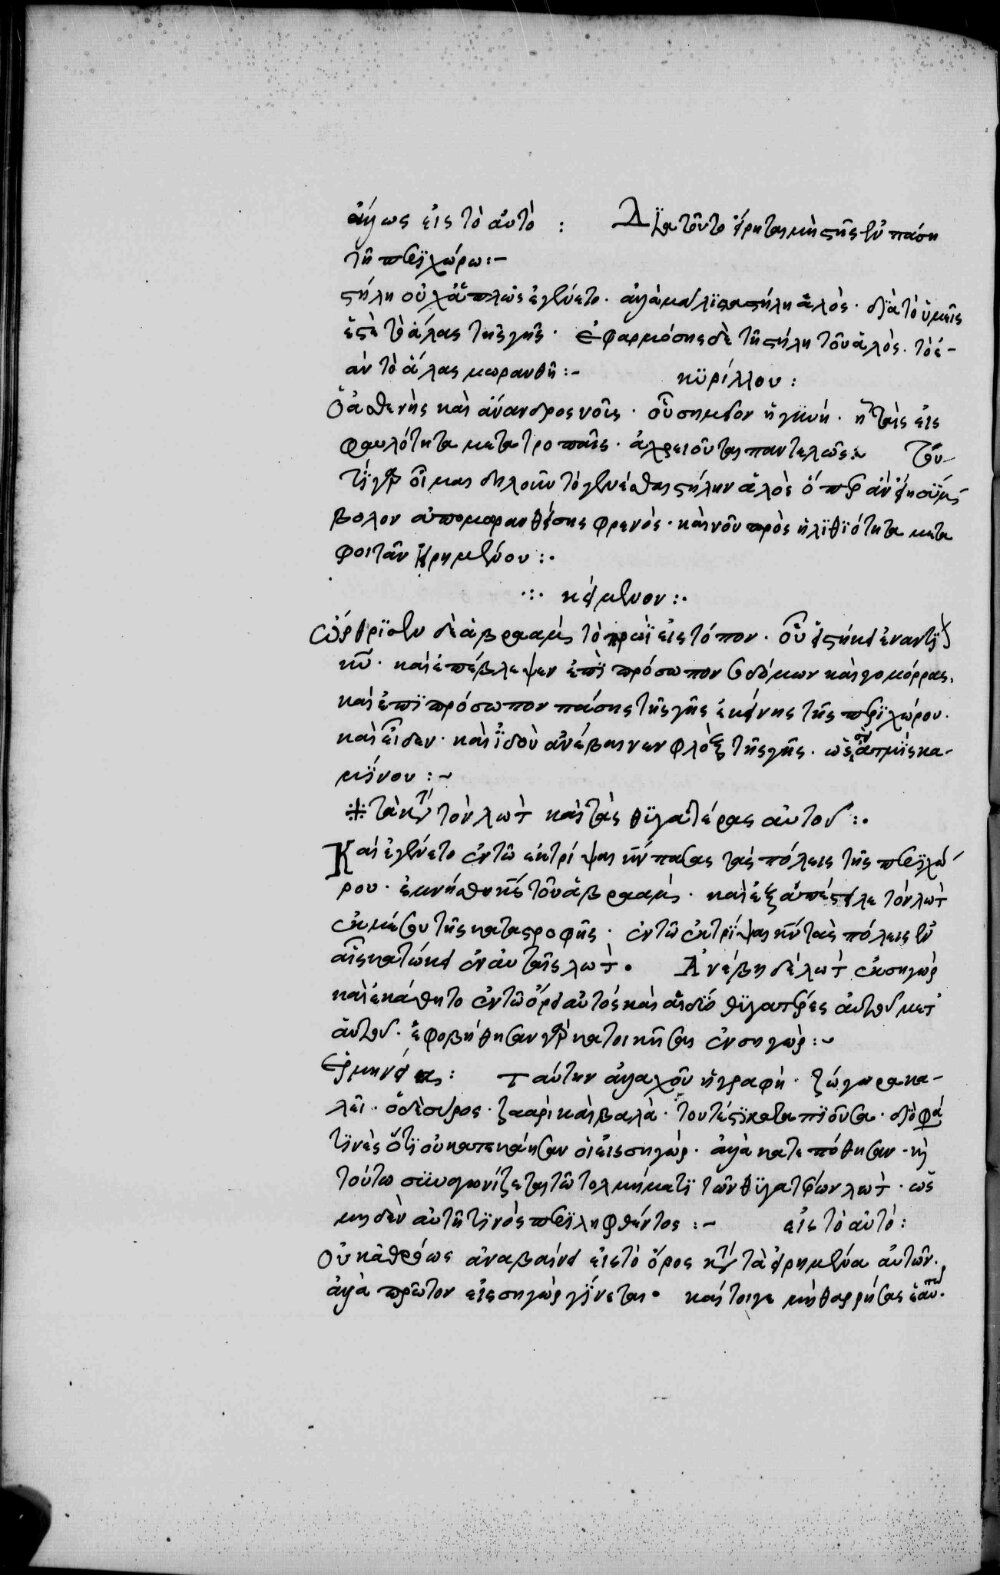 ἄλλως εἰς τὸ αὐτό : Διὰ τοῦτο εἴρηται μὴ στῆς ἐν πάση
τῆ περιχώρω :-
στήλη οὐχ ἁπλῶς ἐγένετο · ἀλλὰ στήλη ἁλός · διὰ τὸ ὑμεῖς
ἐστὲ τὸ ἅλας τῆς γῆς · ἐφαρμόσης δὲ τῆ στήλη τοῦ ἁλὸς · τὸ ἐ-
ὰν τὸ ἅλας μωρανθῆ :- κυρίλλου :
ὁ ἀσθενὴς καὶ ἄνανδρος νοῦς · οὗ σημεῖον ἡ γυνή · ταῖς εἰς
φαυλότητα μετατροπαῖς · ἀχρειοῦται παντελῶς
τι γὰρ οἶμαι δηλοῦν τὸ γενέσθαι στήλην ἁλὸς ὅπερ ἂν εἴη σύμ-
βολον ἀπομωρανθείσης φρενός · καὶ νοῦν πρὸς ἠλιθιότητα μετα
φοιτᾶν εἰρημένου :·
·:· κείμενον :·
ὤρθρισεν δὲ ἁβραὰμ τὸ πρωῒ εἰς τόπον · οὗ εἱστήκει ἐναντίον
κυ · καὶ ἐπέβλεψεν ἐπὶ πρόσωπον σοδόμων καὶ γομόρρας ·
καὶ ἐπὶ πρόσωπον πάσης τῆς γῆς ἐκείνης τῆς περιχώρου ·
καὶ εἶδεν · καὶ ἰδοὺ ἀνέβαινεν φλὸξ τῆς γῆς · ὡσεὶ ἀτμὶς κα-
μίνου :~
τὰ κατὰ τὸν λὼτ καὶ τὰς θυγατέρας αὐτοῦ :·
Καὶ ἐγένετο ἐν τῶ ἐκτρίψαι κν πάσας τὰς πόλεις τῆς περιχώ-
ρου · ἐμνήσθη κς τοῦ ἁβραάμ · καὶ ἐξαπέστειλε τὸν λὼτ
ἐκ μέσου τῆς καταστροφῆς · ἐν τῶ ἐκτρίψαι κν τὰς πόλεις ἐν
αἷς κατώκει ἐν αὐταῖς λώτ · Ἀνέβη δὲ λὼτ ἐκ σηγὼρ
καὶ ἐκάθητο ἐν τῶ ὄρει αὐτὸς καὶ αἱ δύο θυγατέρες αὐτοῦ μετ'
αὐτοῦ · ἐφοβήθησαν γὰρ κατοικῆσαι ἐν σηγώρ :~
Ἑρμηνεία : ταύτην ἀλλαχοῦ ἡ γραφὴ · ζώγωρα κα-
λεῖ · ὁ δὲ σύρος · ζααρὶ καὶ βαλὰ · τουτέστι καταπιοῦσα · διό φα
τινὲς ὅτι οὐκ ἀπεπνίγησαν οἱ εἰς σηγώρ · ἀλλὰ κατεπόθησαν · καὶ
τοῦτο συναγωνίζεται τῶ τολμήματι τῶν θυγατέρων λώτ · ὡς
μηδὲν αὐτῆ τινὸς περιλειφθέντος :- εἰς τὸ αὐτό :
οὐκ εὐθέως ἀναβαίνει εἰς τὸ ὄρος κατὰ τὰ εἰρημένα αὐτῶν ·
ἀλλὰ πρῶτον εἰς σηγὼρ γίνεται · καίτοιγε μὴ θαρρήσας